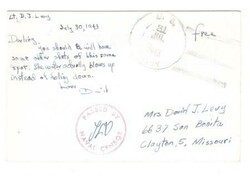 Lt. D. J. Levy
July 30, 1943
Darling,
you should & will have
some other shots of this same
spot. She unfortunately blows up
instead of being down.
David
free
PASSED BY
NAVAL CENSOR
Mrs David J. Levy
6637 San Bonita
Clayton, 5, Missouri